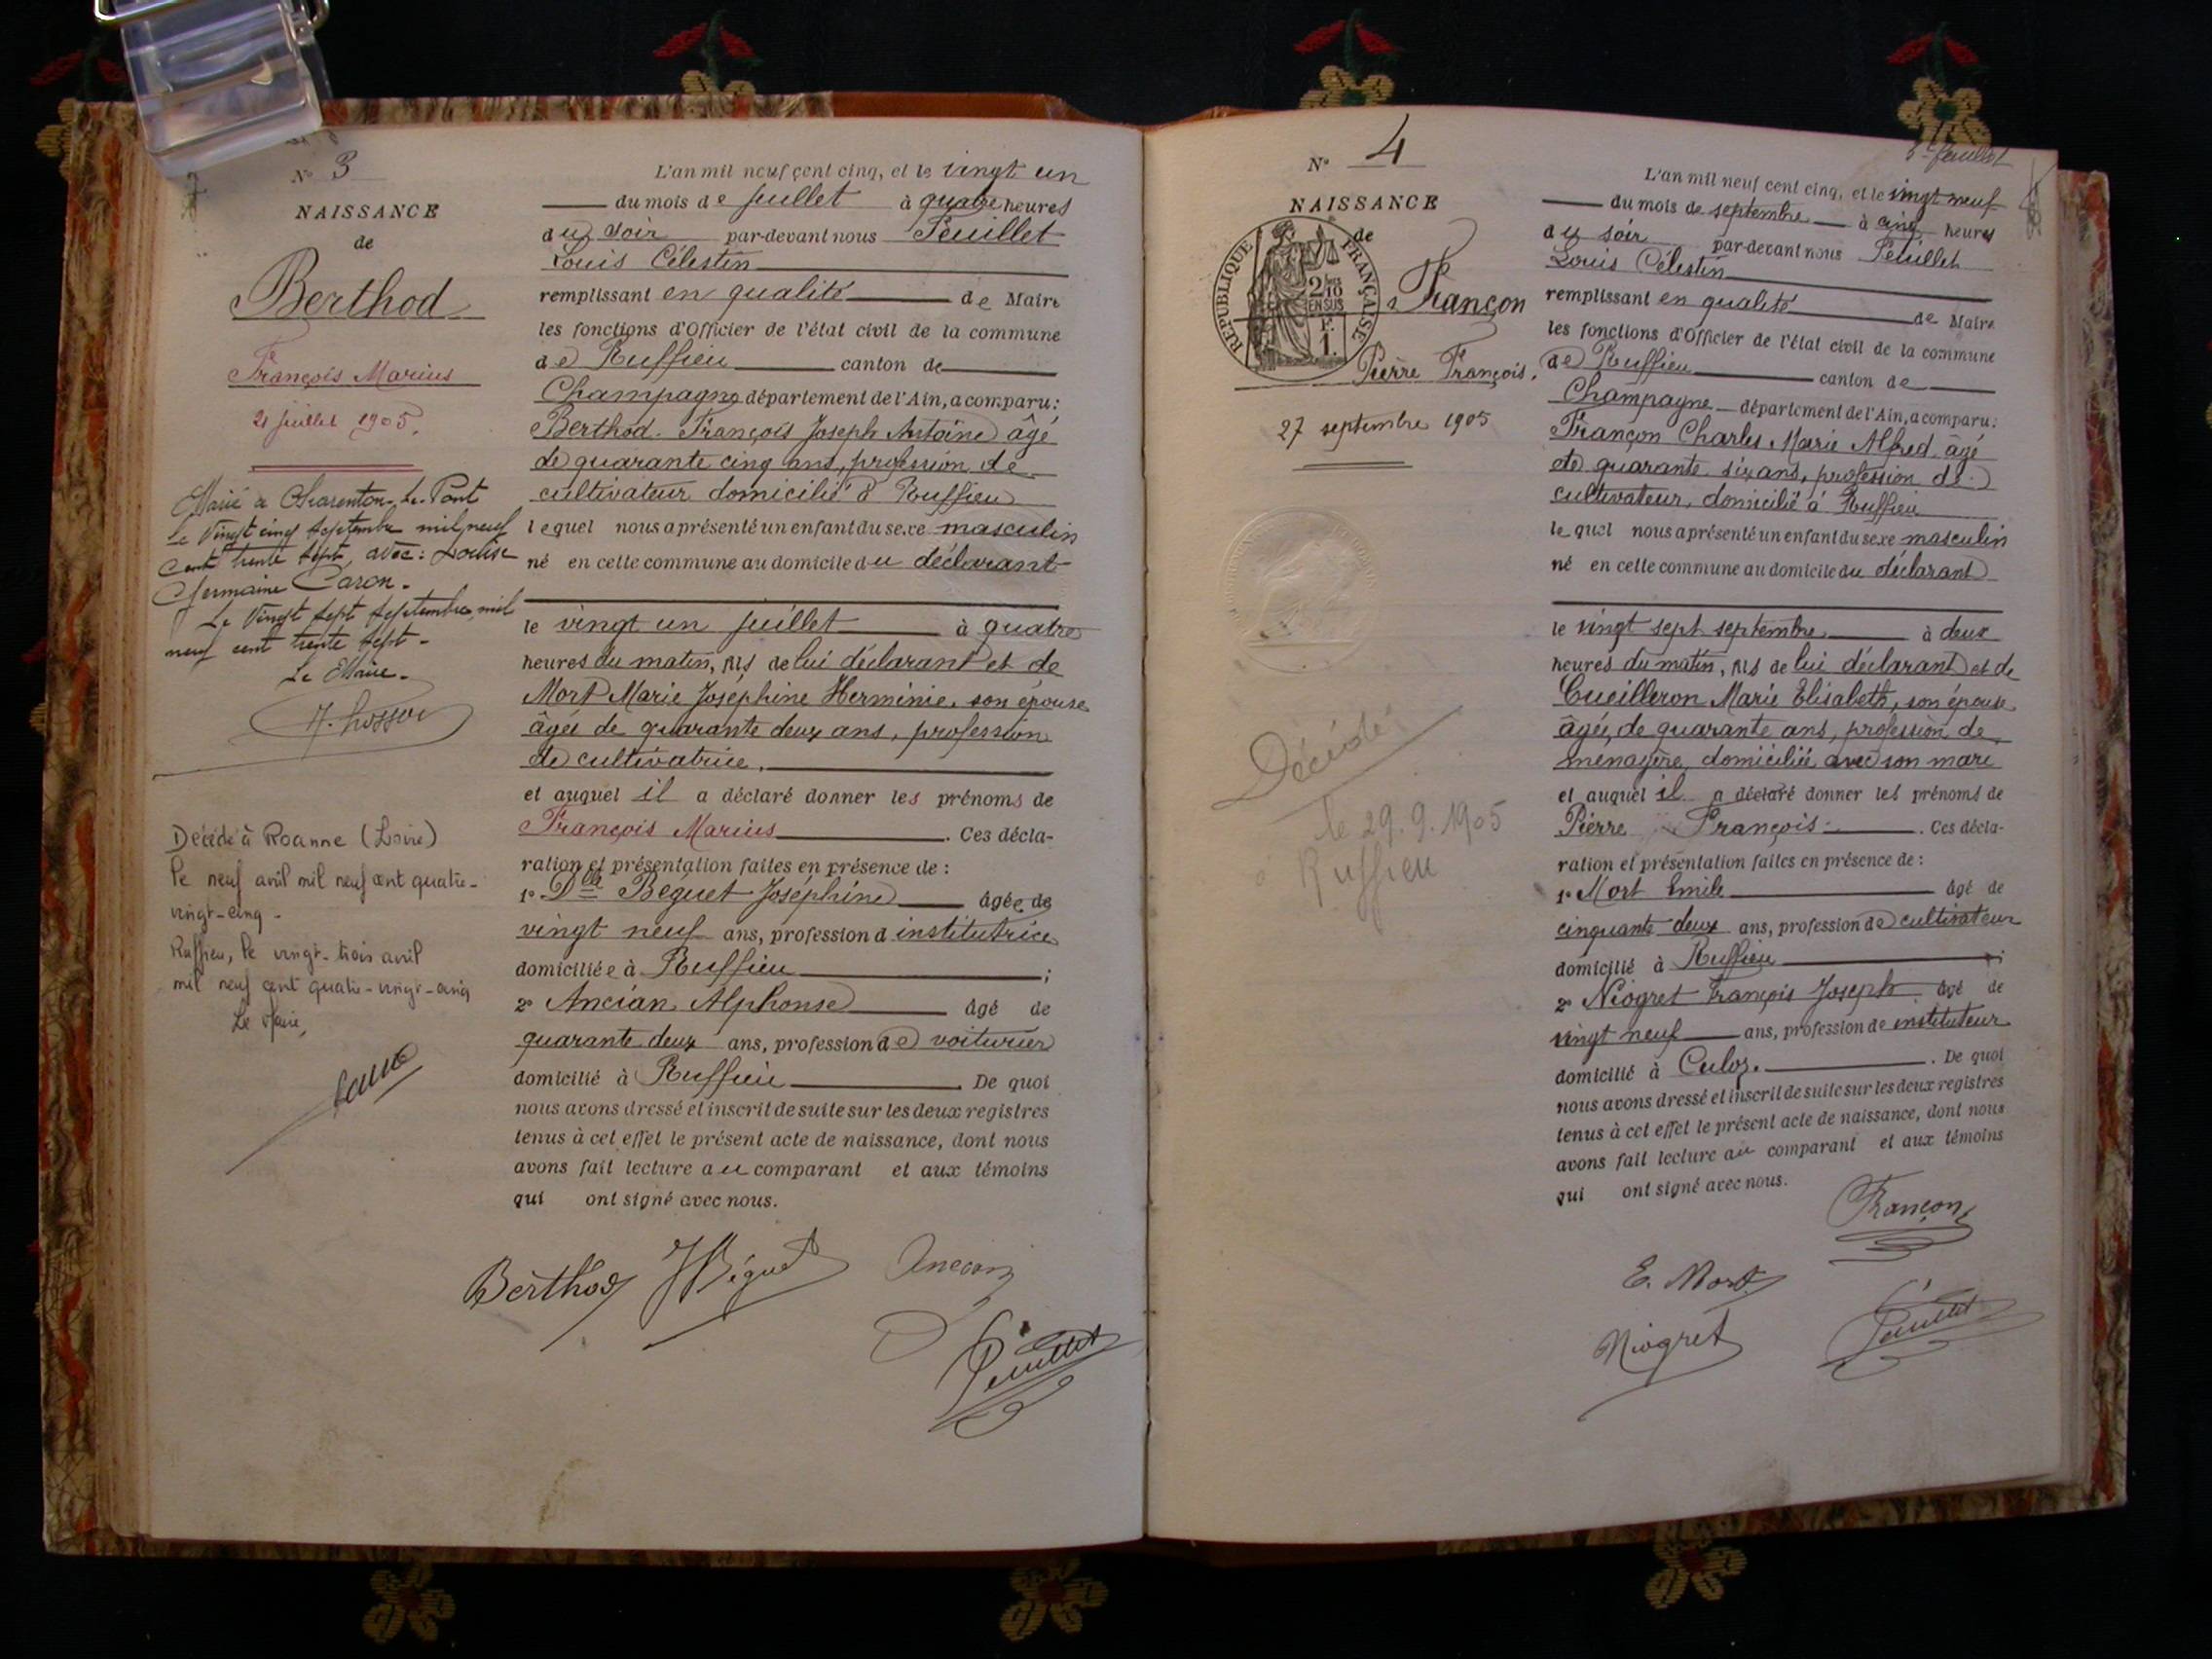 N° 3
NAISSANCE
de
Berthod
François Marius
21 juillet 1905.
Marié à Charenton-le-Pont
le Vingt cinq septembre mil neuf
cent trente sept, avec: Louise
Germaine Caron.
Le Vingt sept septembre mil
neuf cent trente sept.
Le Maire.
Décédé à Roanne (Loire)
le neuf avril mil neuf cent quatre-
vingt-cinq.
Ruffieu, le vingt-trois avril
mil neuf cent quatre-vingt-cinq
Le Maire,
L'an mil neuf cent cinq, et le vingt un
du mois de juillet à quatre heures
du soir par-devant nous Peuillet
Louis Célestin
remplissant en qualité de Maire
les fonctions d'Officier de l'état civil de la commune
de Ruffieu canton de
Champagne département de l'Ain, a comparu:
Berthod François Joseph Antoine âgé
de quarante cinq ans, profession de
cultivateur domicilié à Ruffieu
lequel nous a présenté un enfant du sexe masculin
né en cette commune au domicile du déclarant
le vingt un juillet à quatre
heures du matin, fils de lui déclarant et de
Mort Marie Joséphine Herminie, son épouse
âgée de quarante deux ans, profession
de cultivatrice.
et auquel il a déclaré donner les prénoms de
François Marius. Ces décla-
ration et présentation faites en présence de :
1° Dlle Béguet Joséphine âgée de
vingt neuf ans, profession d institutrice
domiciliée à Ruffieu ;
2° Ancian Alphonse âgé de
quarante deux ans, profession de voiturier
domicilié à Ruffieu. De quoi
nous avons dressé et inscrit de suite sur les deux registres
tenus à cet effet le présent acte de naissance, dont nous
avons fait lecture au comparant et aux témoins
qui ont signé avec nous.
Berthod JBéguet Ancian
Peuillet
5e feuillet
N° 4
NAISSANCE
de
RÉPUBLIQUE FRANÇAISE
2/10
EN SUS
F.
1.
Françon
Pierre François.
27 septembre 1905
Décédé
le 29.9.1905
à Ruffieu
L'an mil neuf cent cinq, et le vingt neuf
du mois de septembre à cinq heures
du soir par-devant nous Peuillet
Louis Célestin
remplissant en qualité de Maire
les fonctions d'Officier de l'état civil de la commune
de Ruffieu canton de
Champagne département de l'Ain, a comparu:
Françon Charles Marie Alfred âgé
de quarante six ans, profession de
cultivateur, domicilié à Ruffieu
lequel nous a présenté un enfant du sexe masculin
né en cette commune au domicile du déclarant
le vingt sept septembre à deux
heures du matin, fils de lui déclarant et de
Cueilleron Marie Elisabeth, son épouse
âgée, de quarante ans, profession de
ménagère, domiciliée avec son mari
et auquel il a déclaré donner les prénoms de
Pierre François. Ces décla-
ration et présentation faites en présence de :
1° Mort Emile âgé de
cinquante deux ans, profession de cultivateur
domicilié à Ruffieu ;
2° Niogret François Joseph âgé de
vingt neuf ans, profession de instituteur
domicilié à Culoz. De quoi
nous avons dressé et inscrit de suite sur les deux registres
tenus à cet effet le présent acte de naissance, dont nous
avons fait lecture au comparant et aux témoins
qui ont signé avec nous.
Françon
E. Mort
Niogret Peuillet